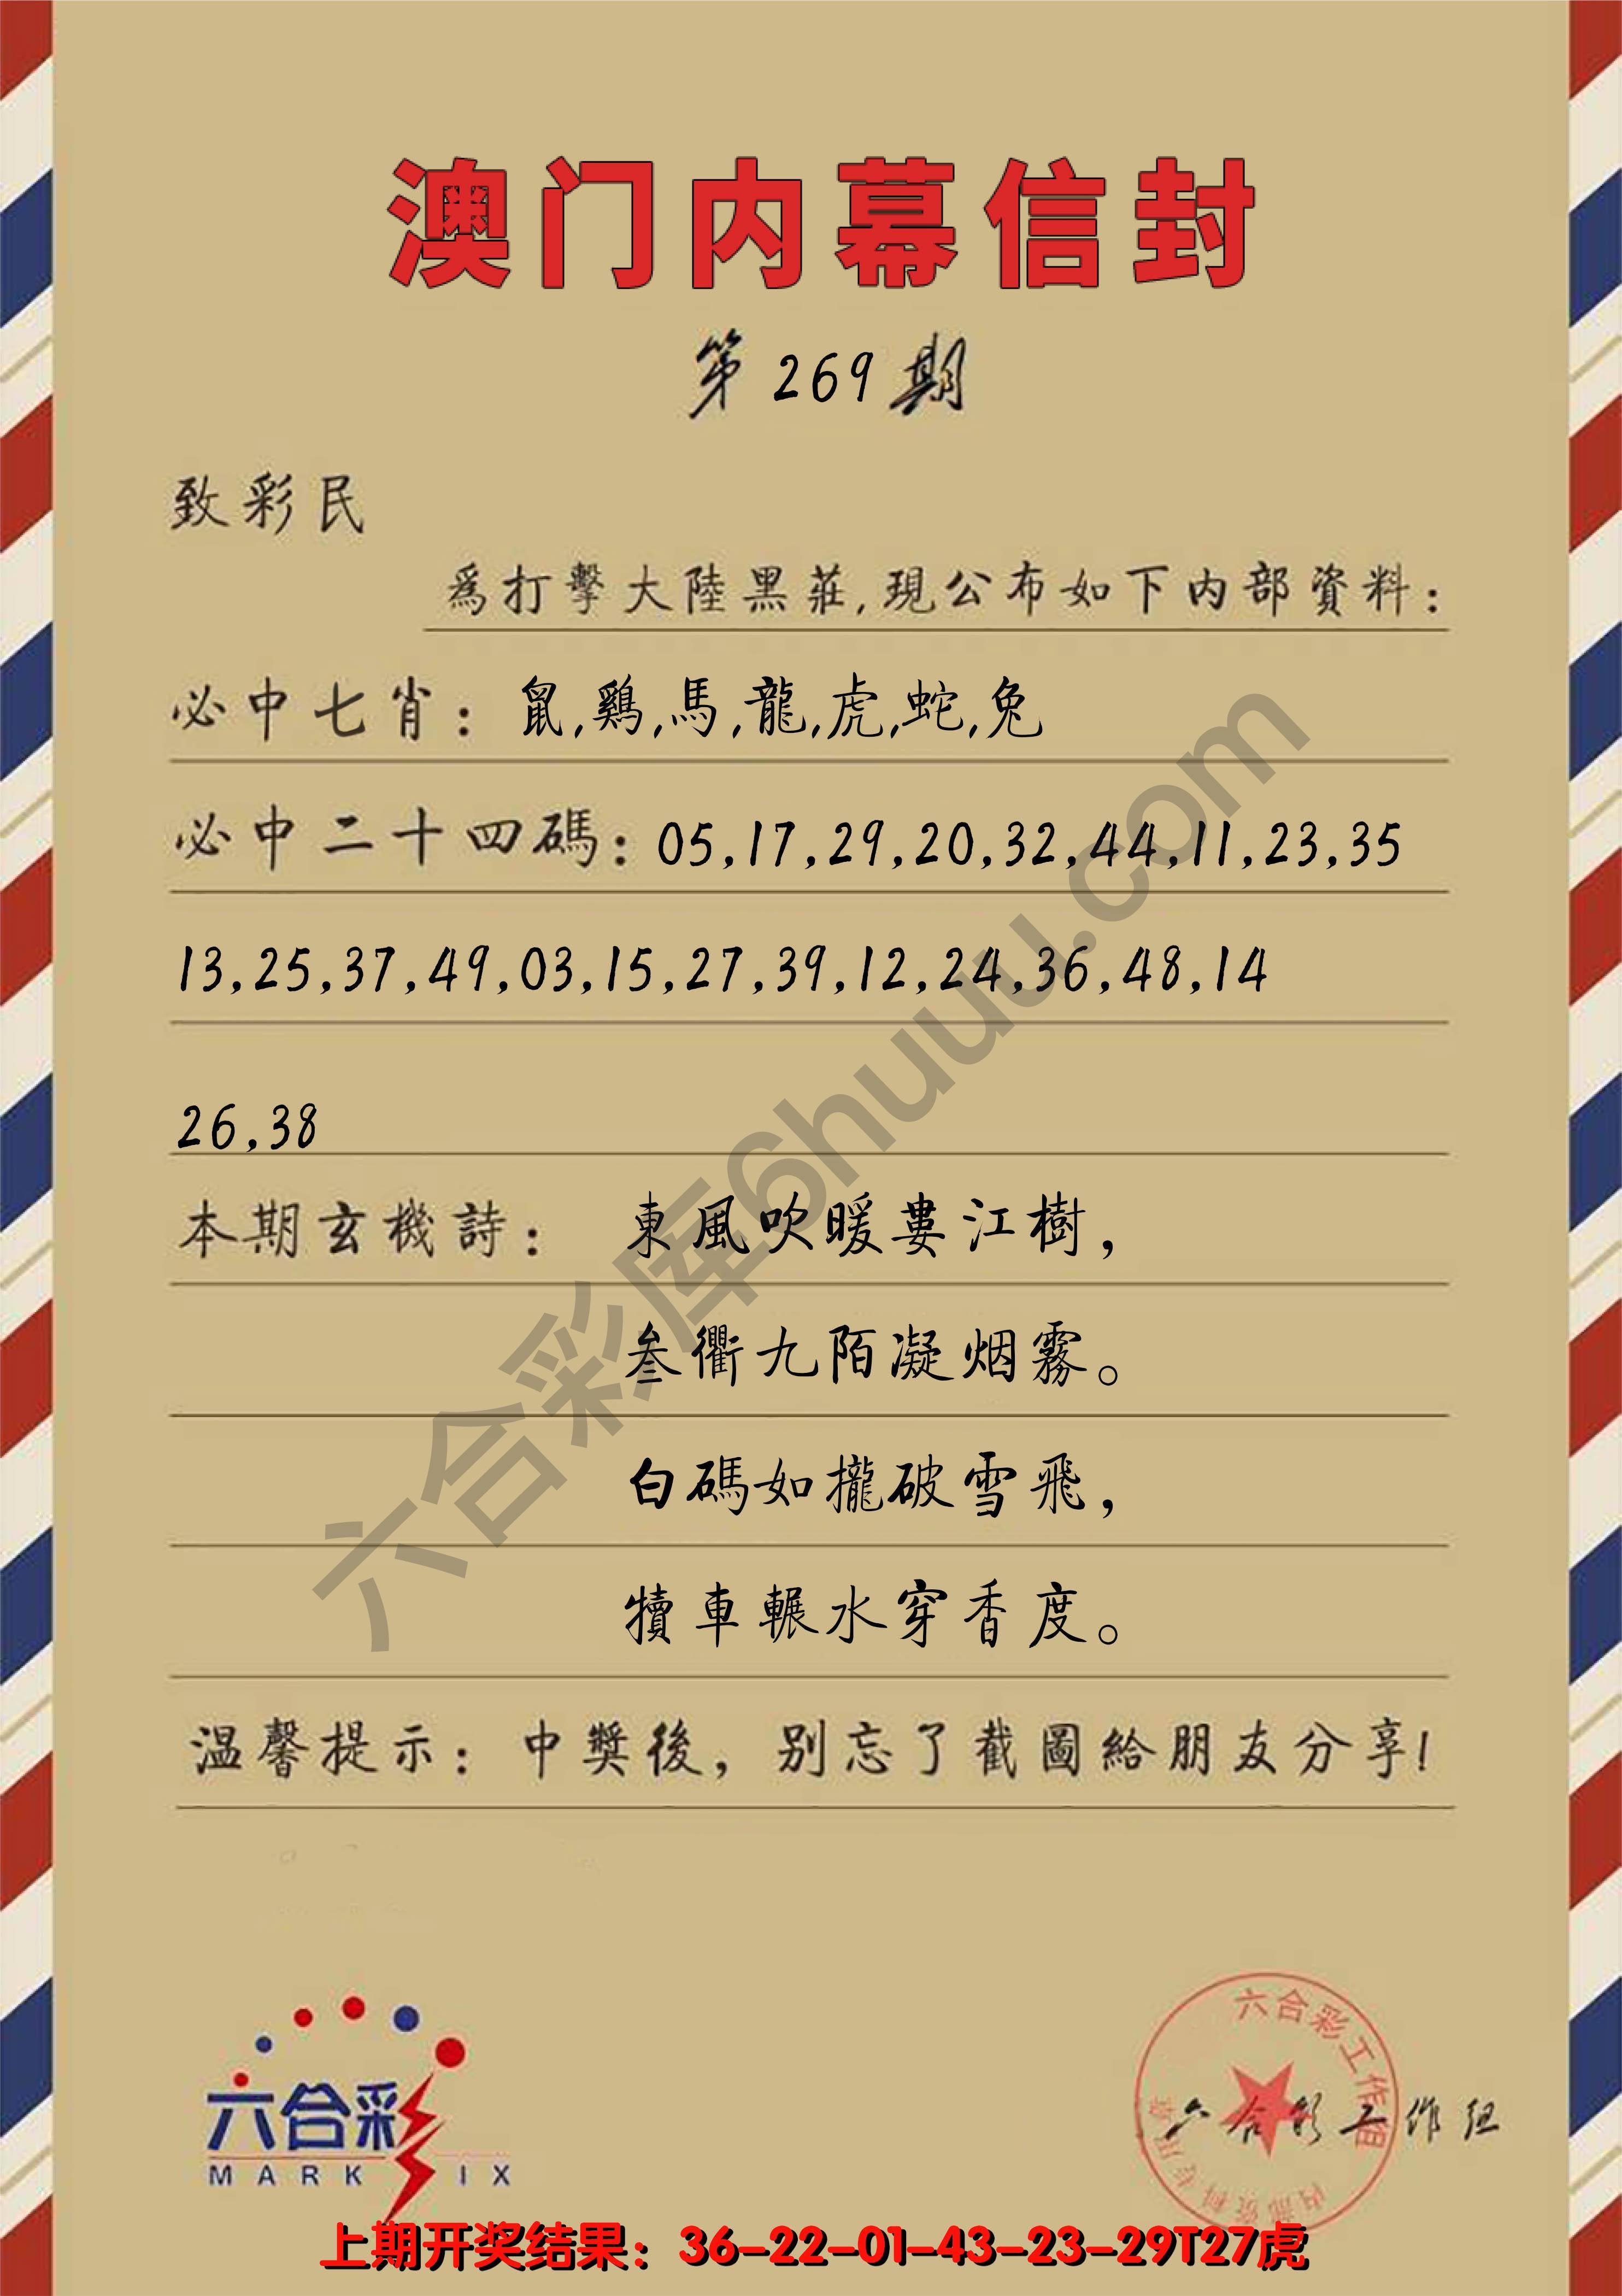 澳门内幕信封
第269期
致彩民
為打擊大陸黑莊,現公布如下内部資料:
必中七肖: 鼠,鷄,馬,龍,虎,蛇,兔
必中二十四碼: 05,17,29,20,32,44,11,23,35
13,25,37,49,03,15,27,39,12,24,36,48,14
26,38
本期玄機詩: 東風吹暖婁江樹,
叁衢九陌凝烟霧。
白碼如攏破雪飛,
犢車輾水穿香度。
温馨提示: 中獎後, 别忘了截圖給朋友分享!
六合彩库6huuu.com
六合彩
MARK IX
六合彩工作組
六合彩工作组
内部资料专用章
上期开奖结果: 36-22-01-43-23-29T27虎